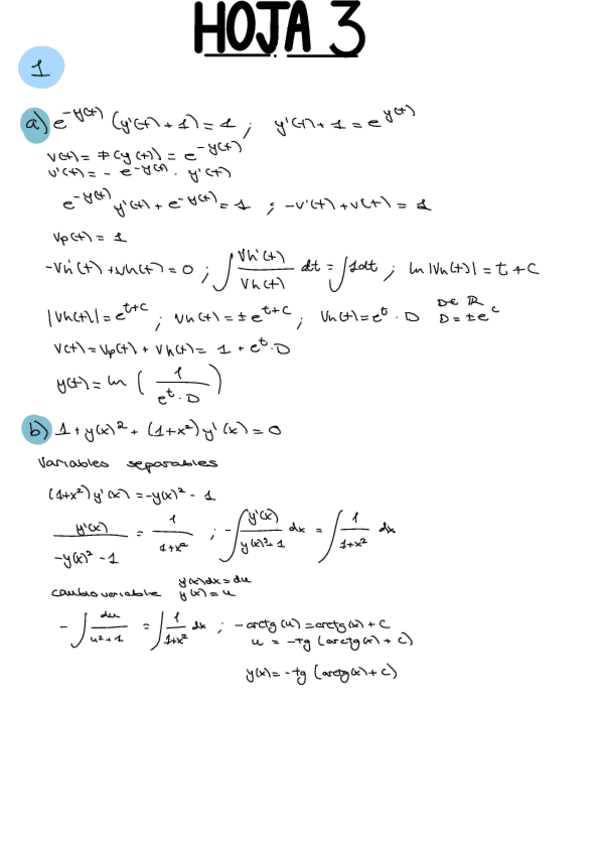 HOJA 3
1
a) e^{-y(t)} (y'(t) + 1) = 1 ; y'(t) + 1 = e^{y(t)}
v(t) = φ(y(t)) = e^{-y(t)}
v'(t) = - e^{-y(t)} · y'(t)
e^{-y(t)} y'(t) + e^{-y(t)} = 1 ; -v'(t) + v(t) = 1
Vp(t) = 1
-Vh'(t) + Vh(t) = 0 ; ∫ Vh'(t) / Vh(t) dt = ∫ 1 dt ; ln |Vh(t)| = t + C
|Vh(t)| = e^{t+C} ; Vh(t) = ± e^{t+C} ; Vh(t) = e^t · D D ∈ ℝ D = ± e^C
V(t) = Vp(t) + Vh(t) = 1 + e^t · D
y(t) = ln ( 1 / e^t · D )
b) 1 + y(x)² + (1+x²) y'(x) = 0
Variables separables
(1+x²) y'(x) = -y(x)² - 1
y'(x) / -y(x)² - 1 = 1 / 1+x² ; -∫ y'(x) / y(x)²+1 dx = ∫ 1 / 1+x² dx
cambio variable y(x)dx = du y(x) = u
-∫ du / u²+1 = ∫ 1 / 1+x² dx ; -arctg(u) = arctg(x) + C
u = -tg (arctg(x) + C)
y(x) = -tg (arctg(x) + C)